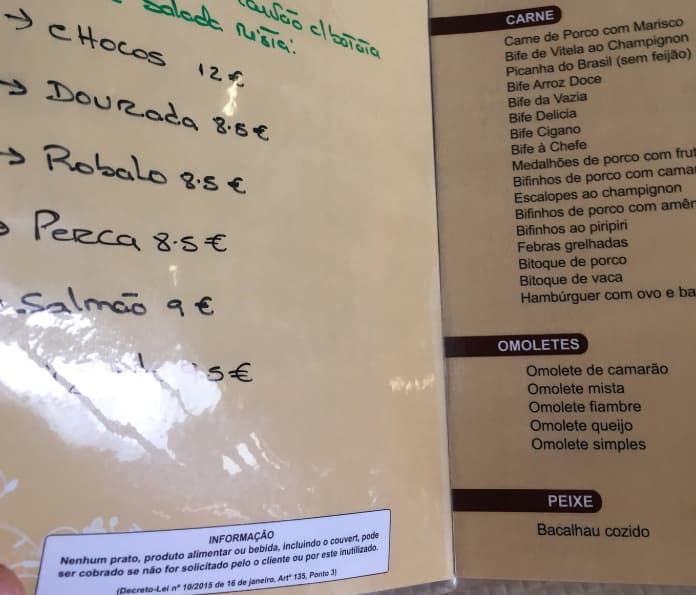 salada rúsia:
→ CHOCOS 12 €
→ DOURADA 8.5 €
→ Robalo 8.5 €
PERCA 8.5 €
Salmão 9 €
5 €
INFORMAÇÃO
Nenhum prato, produto alimentar ou bebida, incluindo o couvert, pode
ser cobrado se não for solicitado pelo o cliente ou por este inutilizado.
(Decreto-Lei nº 10/2015 de 16 de janeiro, Artº 135, Ponto 3)
CARNE
Carne de Porco com Marisco
Bife de Vitela ao Champignon
Picanha do Brasil (sem feijão)
Bife Arroz Doce
Bife da Vazia
Bife Delicia
Bife Cigano
Bife à Chefe
Medalhões de porco com frut
Bifinhos de porco com camar
Escalopes ao champignon
Bifinhos de porco com amên
Bifinhos ao piripiri
Febras grelhadas
Bitoque de porco
Bitoque de vaca
Hambúrguer com ovo e ba
OMOLETES
Omolete de camarão
Omolete mista
Omolete fiambre
Omolete queijo
Omolete simples
PEIXE
Bacalhau cozido